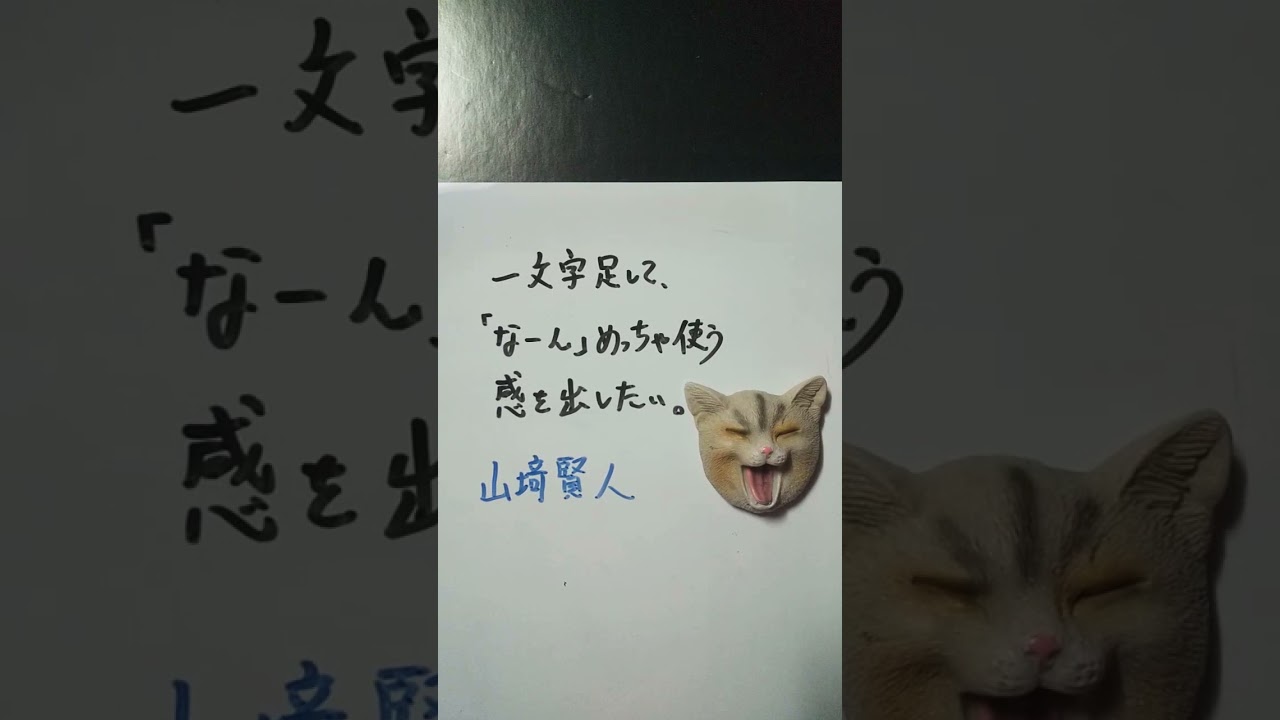 一文字足して、
「なーん」めっちゃ使う
感を出したい。
山﨑賢人